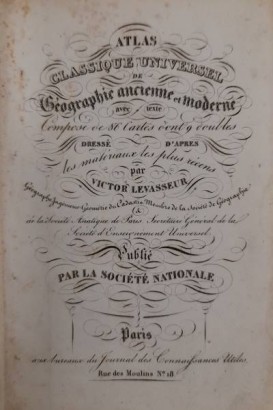 ATLAS
CLASSIQUE UNIVERSEL
DE
Géographie ancienne et moderne
avec texte
Composé de 81 Cartes dont 9 doubles
DRESSÉ D'APRÈS
les matériaux les plus récens
par
VICTOR LEVASSEUR,
Géographe Ingénieur Géomètre du Cadastre Membre de la Société de Géographie
& de la Société Asiatique de Paris Secrétaire Général de la
Société d'Enseignement Universel
Publié
PAR LA SOCIÉTÉ NATIONALE
Paris
aux bureaux du Journal des Connaissances Utiles,
Rue des Moulins Nº 18